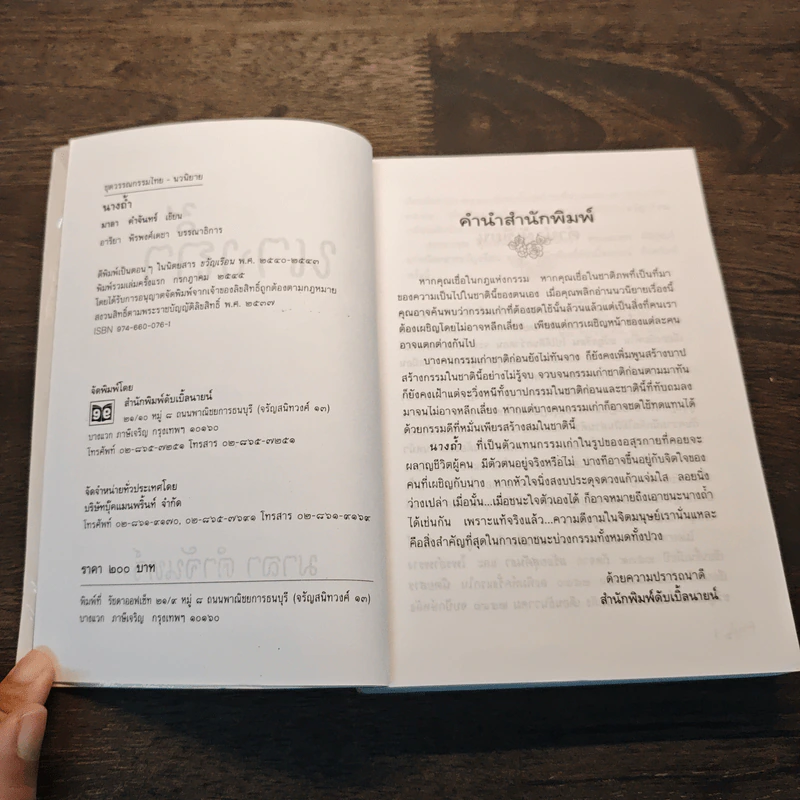 ชุดวรรณกรรมไทย - นวนิยาย
นางถ้ำ
มาลา คำจันทร์ เขียน
อารียา พิรพงศ์เดชา บรรณาธิการ
ตีพิมพ์เป็นตอนๆ ในนิตยสาร ขวัญเรือน พ.ศ. ๒๕๔๐-๒๕๔๓
พิมพ์รวมเล่มครั้งแรก กรกฎาคม ๒๕๔๕
โดยได้รับการอนุญาตจัดพิมพ์จากเจ้าของลิขสิทธิ์ถูกต้องตามกฎหมาย
สงวนสิทธิ์ตามพระราชบัญญัติลิขสิทธิ์ พ.ศ. ๒๕๓๗
ISBN 974-660-076-1
จัดพิมพ์โดย
สำนักพิมพ์ดับเบิ้ลนายน์
๒๑/๑๐ หมู่ ๘ ถนนพาณิชยการธนบุรี (จรัญสนิทวงศ์ ๑๓)
บางแวก ภาษีเจริญ กรุงเทพฯ ๑๐๑๖๐
โทรศัพท์ ๐๒-๘๖๕-๗๒๕๑ โทรสาร ๐๒-๘๖๕-๗๒๕๑
จัดจำหน่ายทั่วประเทศโดย
บริษัทบุ๊คแมนพริ้นท์ จำกัด
โทรศัพท์ ๐๒-๘๖๑-๙๑๗๐, ๐๒-๘๖๕-๗๖๙๑ โทรสาร ๐๒-๘๖๑-๙๑๖๙
ราคา ๒๐๐ บาท
พิมพ์ที่ รัชดาออฟเซ็ท ๒๑/๙ หมู่ ๘ ถนนพาณิชยการธนบุรี (จรัญสนิทวงศ์ ๑๓)
บางแวก ภาษีเจริญ กรุงเทพฯ ๑๐๑๖๐
คำนำสำนักพิมพ์
หากคุณเชื่อในกฎแห่งกรรม หากคุณเชื่อในชาติภพที่เป็นที่มา
ของความเป็นไปในชาตินี้ของตนเอง เมื่อคุณพลิกอ่านนวนิยายเรื่องนี้
คุณอาจค้นพบว่ากรรมเก่าที่ต้องชดใช้นั้นล้วนแล้วแต่เป็นสิ่งที่คนเรา
ต้องเผชิญโดยไม่อาจหลีกเลี่ยง เพียงแต่การเผชิญหน้าของแต่ละคน
อาจแตกต่างกันไป
บางคนกรรมเก่าชาติก่อนยังไม่ทันจาง ก็ยังคงเพิ่มพูนสร้างบาป
สร้างกรรมในชาตินี้อย่างไม่รู้จบ จวบจนกรรมเก่าชาติก่อนตามมาทัน
ก็ยังคงเฝ้าแต่จะวิ่งหนีทั้งบาปกรรมในชาติก่อนและชาตินี้ที่ทับถมลง
มาจนไม่อาจหลีกเลี่ยง หากแต่บางคนกรรมเก่าก็อาจชดใช้ทดแทนได้
ด้วยกรรมดีที่หมั่นเพียรสร้างสมในชาตินี้
นางถ้ำ ที่เป็นตัวแทนกรรมเก่าในรูปของอสุรกายที่คอยจะ
ผลาญชีวิตผู้คน มีตัวตนอยู่จริงหรือไม่ บางทีอาจขึ้นอยู่กับจิตใจของ
คนที่เผชิญกับนาง หากหัวใจนิ่งสงบประดุจดวงแก้วแจ่มใส ลอยนิ่ง
ว่างเปล่า เมื่อนั้น...เมื่อชนะใจตัวเองได้ ก็อาจหมายถึงเอาชนะนางถ้ำ
ได้เช่นกัน เพราะแท้จริงแล้ว...ความดีงามในจิตมนุษย์เรานั่นแหละ
คือสิ่งสำคัญที่สุดในการเอาชนะบ่วงกรรมทั้งหมดทั้งปวง
ด้วยความปรารถนาดี
สำนักพิมพ์ดับเบิ้ลนายน์